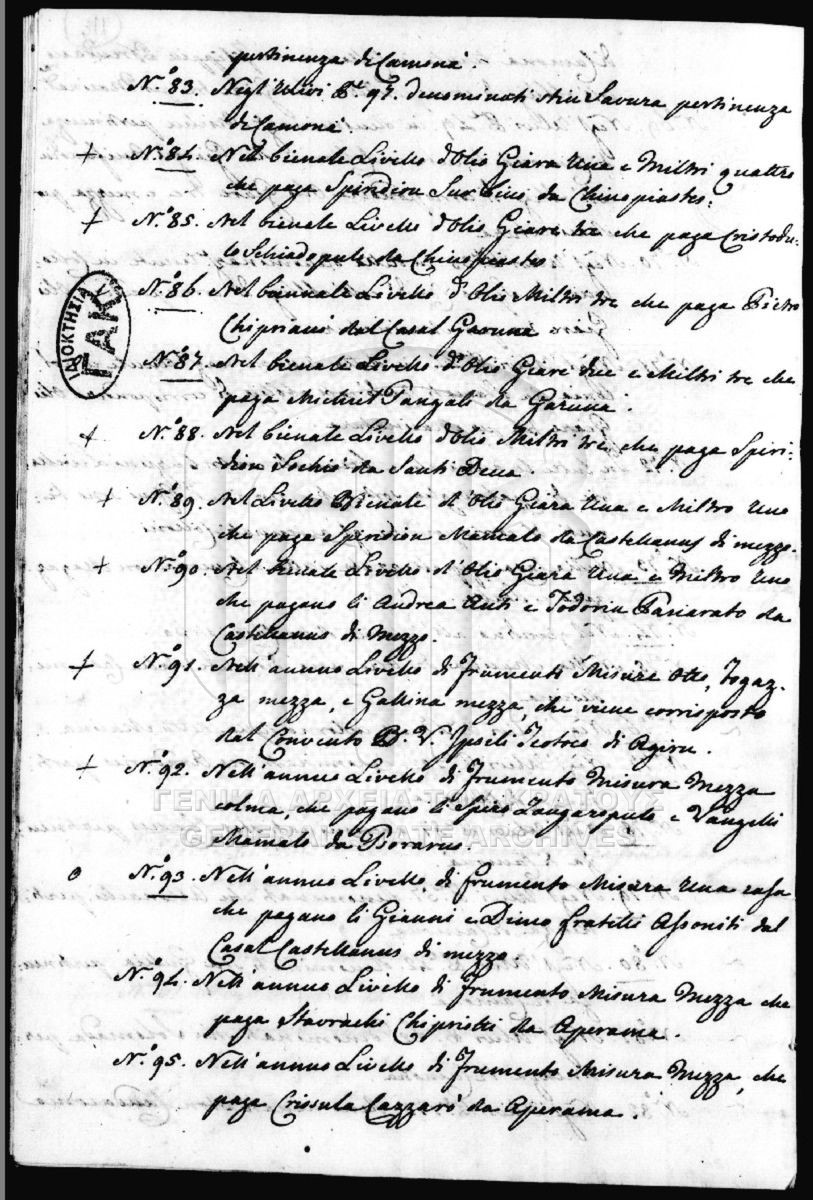 pertinenza di Camonà.
N.º 83. Negl' Ulivi P.te 97. denominati stin Savura pertinenza
di Camonà.
+ N.º 84. Nel bienale Livello d'Olio Giara Una e Miltri quattro
che paga Spiridion da Chinopiastes.
+ N.º 85. Nel bienale Livello d'Olio Giare tre che paga Cristodu:
lo Schiadopulo da Chinopiastes
N.º 86. Nel biennale Livello d'Olio Miltri tre che paga Pietro
Chiprianò dal Casal Garuna
N.º 87. Nel bienale Livello d'Olio Giare due e Miltri tre che
paga Michiel Pangali da Garuna.
+ N.º 88. Nel bienale Livello d'Olio Miltri tre, che paga Spiri:
dion Sochiò da Santi Deca.
+ N.º 89. Nel Livello Bienale d'Olio Giara Una e Miltro Uno
che paga Spiridion Mamalo da Castellanus di mezzo.
+ N.º 90. Nel bienale Livello d'Olio Giara Una e Miltro Uno
che pagano li Andrea Anti e Todorin Paniarato da
Castellanus di Mezzo.
+ N.º 91. Nell' annuo Livello di Frumento Misure Otto, Fogaz:
za mezza, e Gallina mezza, che viene corrisposto
dal Convento B. V. Ipsili Teotoco di Agiru.
+ N.º 92. Nell' annuo Livello di Frumento Misura Mezza
colma, che pagano li Spiro Zangaropulo e Vangelli
Mamalo da
o N.º 93. Nell' annuo Livello di frumento Misura Una rasa
che pagano li Gianni e Dimo fratelli Assoniti dal
Casal Castellanus di mezzo.
N.º 94. Nell' annuo Livello di Frumento Misura Mezza che
paga Stavrachi Chiprioti da Aperama.
N.º 95. Nell' annuo Livello di Frumento Misura Mezza, che
paga Crissula Cazzarò da Aperama.
ΙΔΙΟΚΤΗΣΙΑ
ΓΑΚ
ΓΕΝΙΚΑ ΑΡΧΕΙΑ ΤΟΥ ΚΡΑΤΟΥΣ
GENERAL STATE ARCHIVES